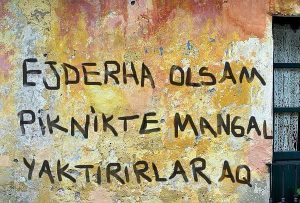 EJDERHA OLSAM
PİKNİKTE MANGAL
YAKTIRIRLAR AQ